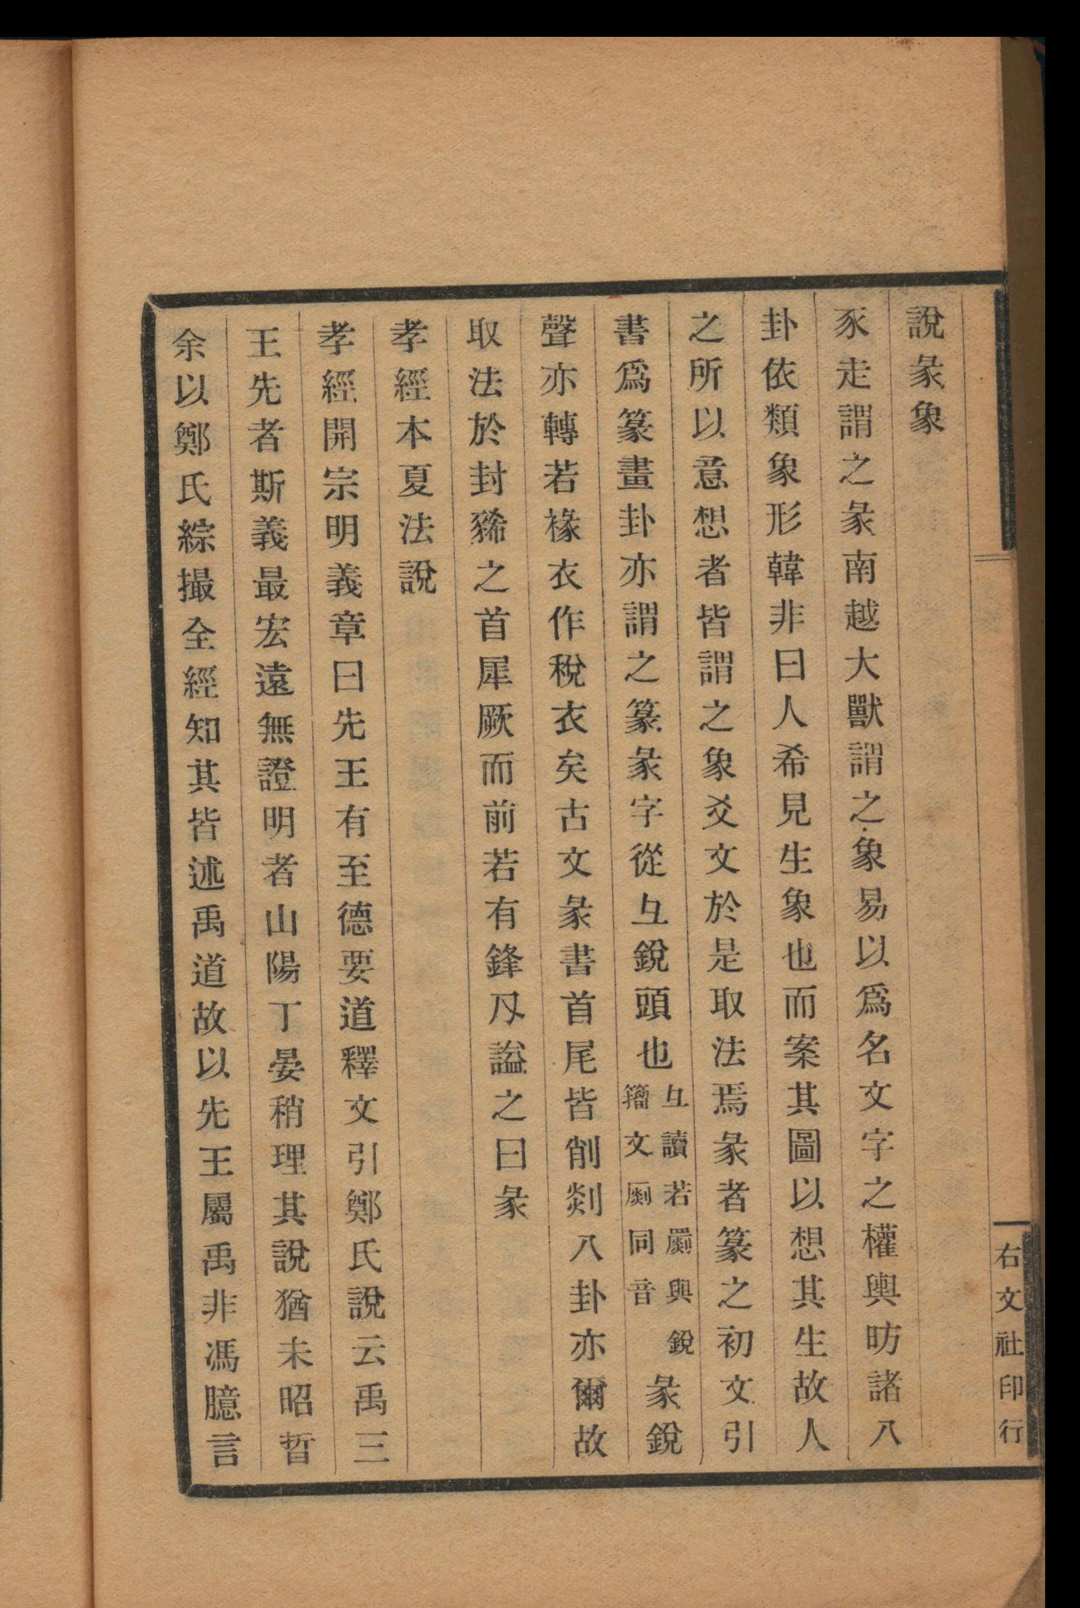 說彖象
豕走謂之彖南越大獸謂之象易以爲名文字之權輿昉諸八
卦依類象形韓非曰人希見生象也而案其圖以想其生故人
之所以意想者皆謂之象爻文於是取法焉彖者篆之初文引
書爲篆畫卦亦謂之篆彖字從彑銳頭也彑讀若罽與銳籒文罽同音彖銳
聲亦轉若褖衣作稅衣矣古文彖書首尾皆削剡八卦亦爾故
取法於封豨之首犀厥而前若有鋒刄謚之曰彖
孝經本夏法說
孝經開宗明義章曰先王有至德要道釋文引鄭氏說云禹三
王先者斯義最宏遠無證明者山陽丁晏稍理其說猶未昭晢
余以鄭氏綜撮全經知其皆述禹道故以先王屬禹非馮臆言
右文社印行